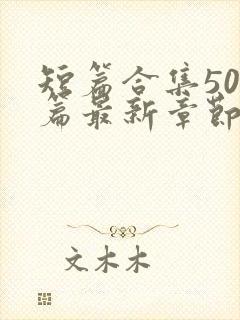 短篇合集50
篇最新章节
文木木